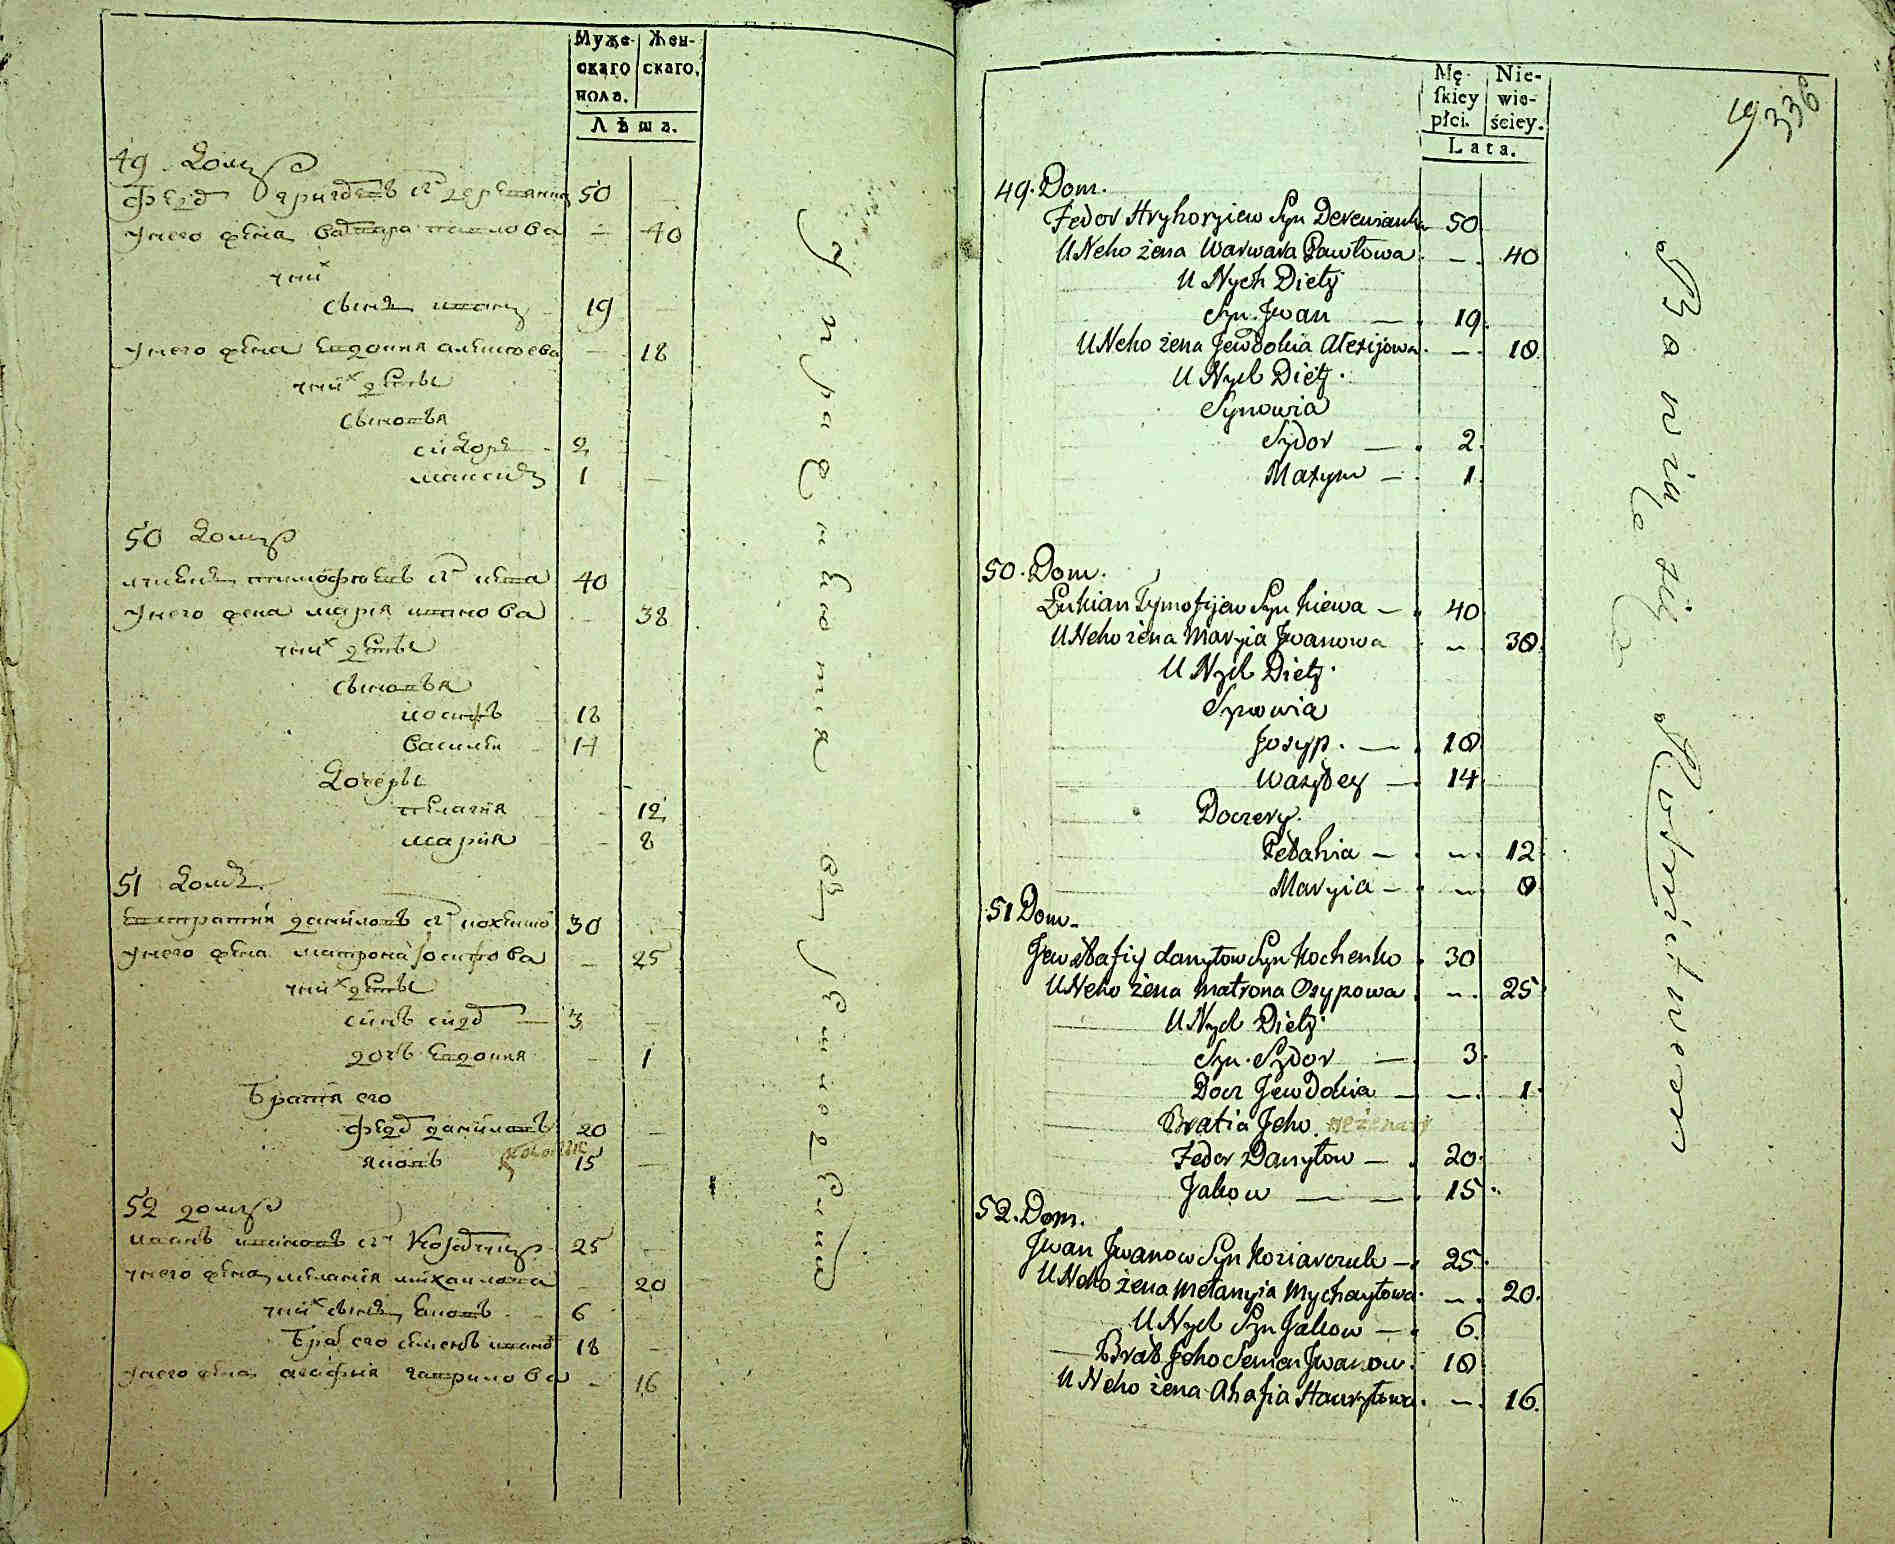 Муже- Жен-
скаго скаго.
пола.
Лѣта.
49 домъ
50
у него жена Варвара Павлова - 40
у них
сынъ Иванъ 19 -
у него жена Евдокия Алексеева - 18
у них дети
сыновья
Сидоръ - 2
Максимъ 1 -
50 домъ
40
у него жена Мария Иванова - 38
у них дети
сыновья
Иосифъ 18
Василий 14
дочери
Пелагия - 12
Мария - 8
51 домъ
30
у него жена Матрона Иосифова - 25
у них дети
синъ Сид 3 -
дочь Евдокия - 1
Братия его
Фед Даниловъ 20 -
Яковъ 15 -
52 домъ
25 -
у него жена Мелания Михаилова - 20
у них сынъ Яковъ - 6
Бра его Семенъ 18 -
у него жена Агафия Гаврилова - 16
Mę- Nie-
skiey wie-
płci. ściey.
Lata.
19 336
49. Dom.
Fedor Hryhoryiew Syn Derewianka 50
U Neho żena Warwara Pawłowa - 40
U Nych Diety
Syn Jwan — 19
U Neho żena Jewdokia Alexijowa - 18
U Nych Diety.
Synowia
Sydor — 2
Maxym — 1
50. Dom.
Łukian Tymofijew Syn Kiewa — 40
U Neho żena Maryia Jwanowa - 38
U Nych Diety.
Synowia
Josyp. — 18
Wasyley — 14
Doczery.
Pelahia — - 12
Maryia — - 8
51 Dom.
Jewstafiy Danyłow Syn Kochenko 30
U Neho żena Matrona Osypowa - 25
U Nych Diety.
Syn. Sydor — 3
Docz Jewdokia — - 1
Bratia Jeho. nieżenaty
Fedor Danyłow — 20
Jakow — — 15
52. Dom.
Jwan Jwanow Syn Koziarczuk — 25
U Neho żena Mełanyia Mychayłowa - 20
U Nych Syn Jakow — 6
— Brat Jeho Semen Jwanow. 18
U Neho żena Ahafia Hawryłowa - 16